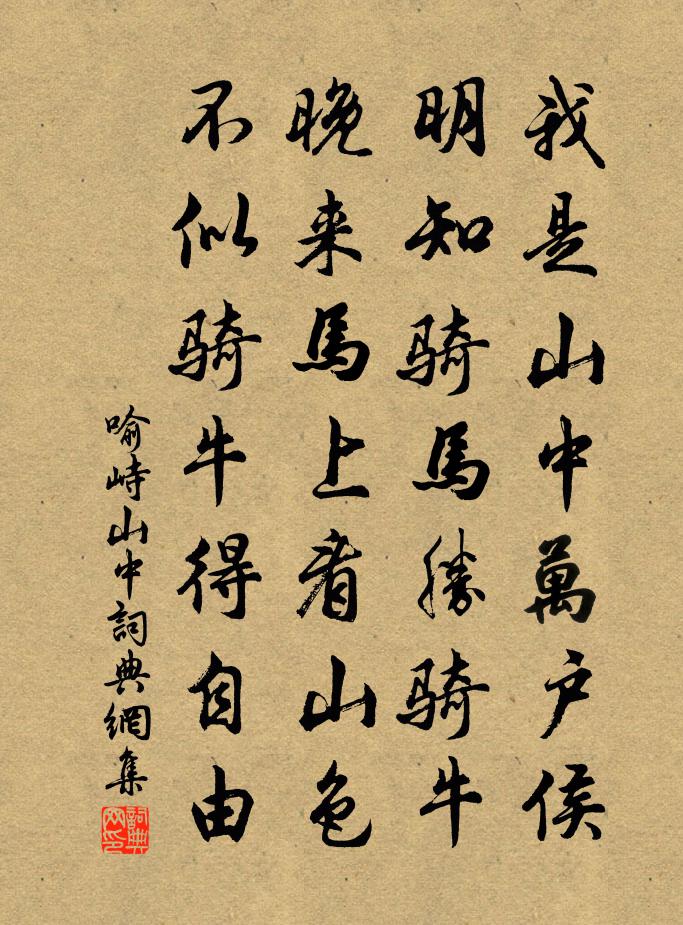 我是山中萬户侯
明知骑馬勝骑牛
晚来馬上看山色
不似骑牛得自由
喻峙山中詞典網集
詞典网印